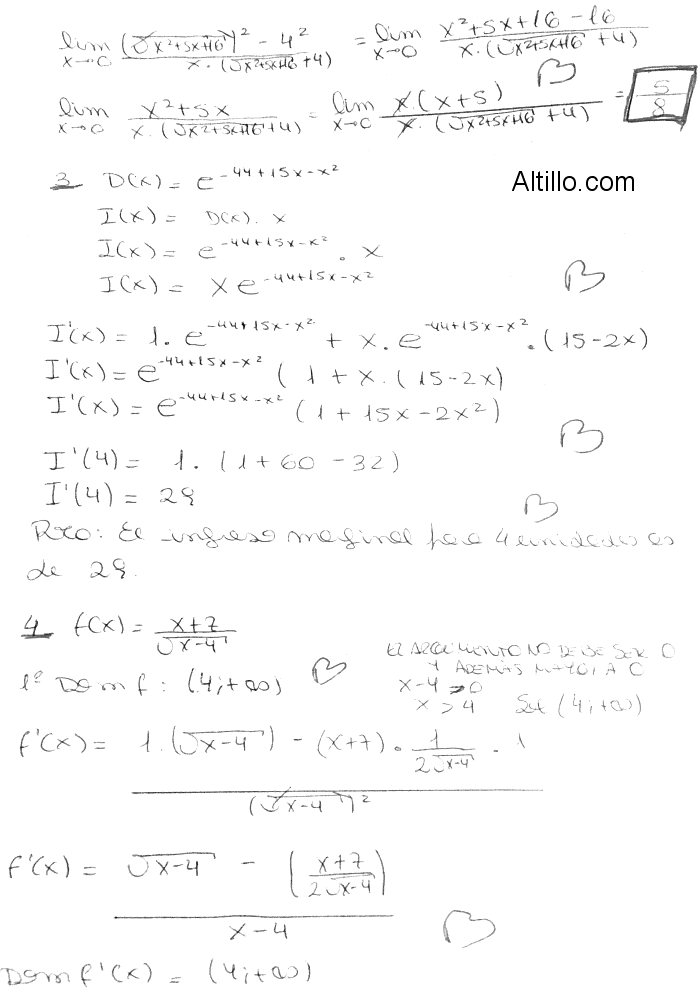 lim x→0 ((√x²+5x+16)² - 4²) / (x·(√x²+5x+16 + 4)) = lim x→0 (x²+5x+16-16) / (x·(√x²+5x+16 + 4))
lim x→0 (x²+5x) / (x·(√x²+5x+16 + 4)) = lim x→0 (x·(x+5)) / (x·(√x²+5x+16 + 4)) = 5/8
B
3 D(x) = e^(-44+15x-x²)
Altillo.com
I(x) = D(x). x
I(x) = e^(-44+15x-x²) . x
I(x) = x e^(-44+15x-x²)
B
I'(x) = 1. e^(-44+15x-x²) + x. e^(-44+15x-x²) . (15-2x)
I'(x) = e^(-44+15x-x²) (1 + x. (15-2x)
I'(x) = e^(-44+15x-x²) (1 + 15x - 2x²)
B
I'(4) = 1. (1+60-32)
I'(4) = 29
B
Rta: El ingreso marginal para 4 unidades es
de 29.
4 f(x) = (x+7) / (√x-4)
EL ARGUMENTO NO DEBE SER 0
Y ADEMÁS MAYOR A 0
1º Dom f: (4;+∞)
B
x-4 > 0
x > 4 Sol (4;+∞)
f'(x) = (1.(√x-4) - (x+7) . 1/(2√x-4) . 1) / (√x-4)²
f'(x) = (√x-4 - ((x+7)/(2√x-4))) / (x-4)
B
Dom f'(x) = (4;+∞)